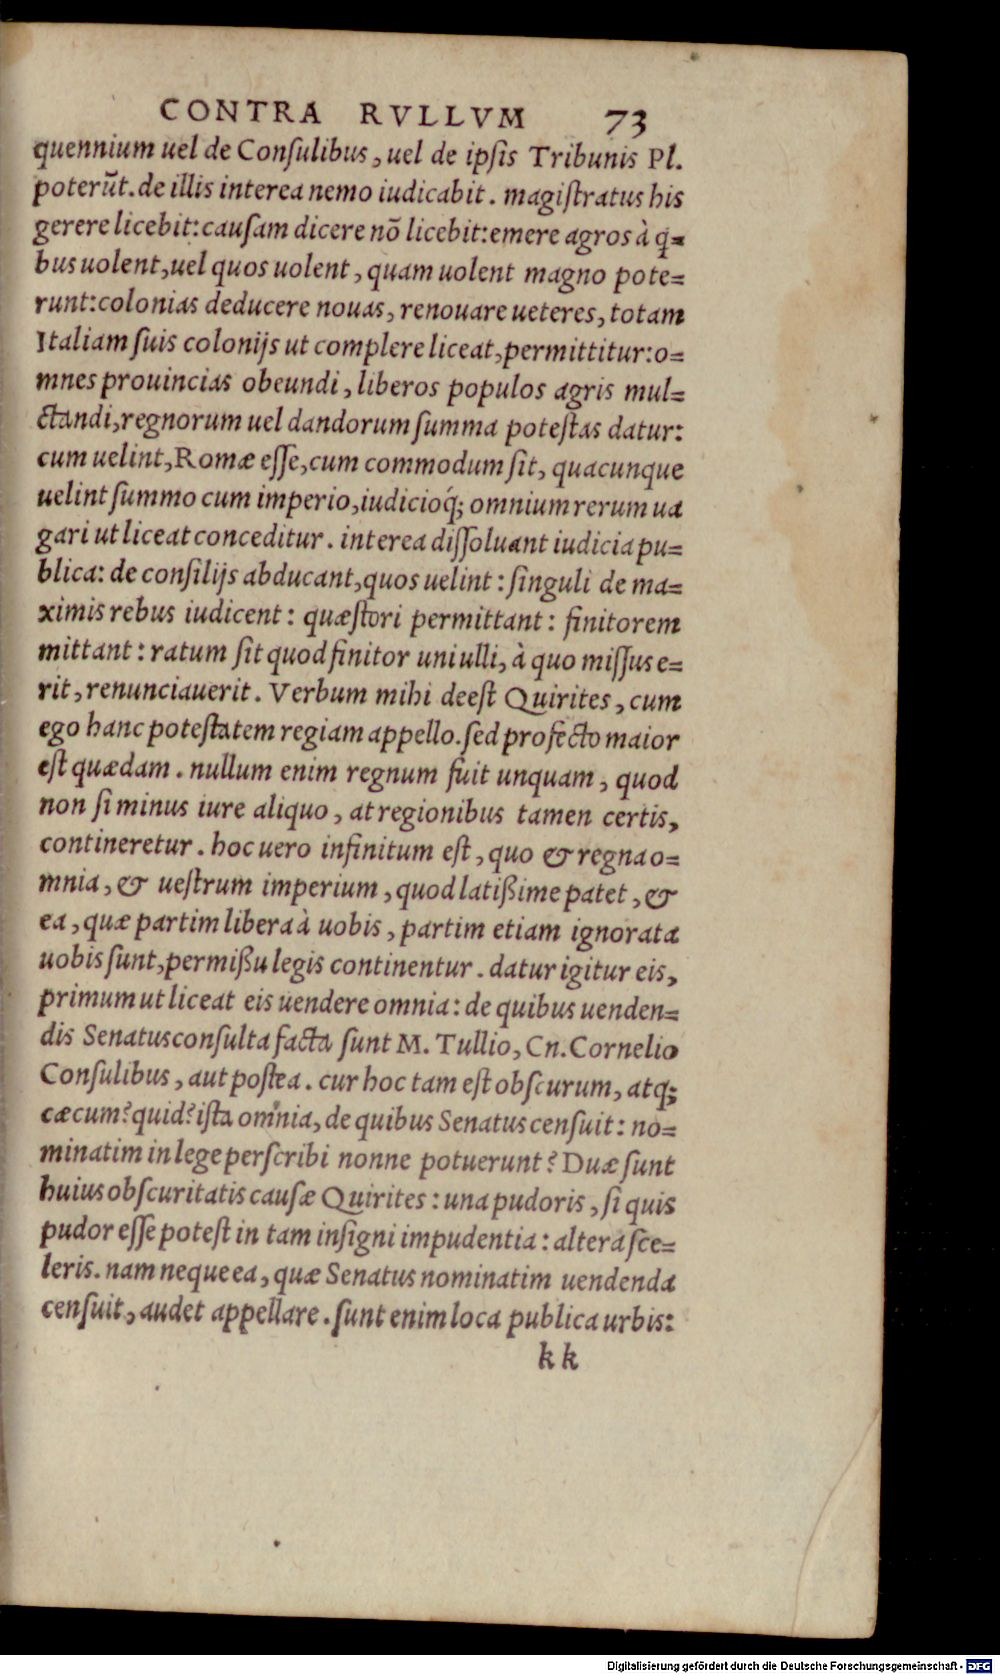 CONTRA RVLLVM 73
quennium uel de Conſulibus, uel de ipſis Tribunis Pl.
poterūt. de illis interea nemo iudicabit. magiſtratus his
gerere licebit: cauſam dicere nō licebit: emere agros à q̃-
bus uolent, uel quos uolent, quam uolent magno pote-
runt: colonias deducere nouas, renouare ueteres, totam
Italiam ſuis colonijs ut complere liceat, permittitur: o-
mnes prouincias obeundi, liberos populos agris mul-
ctandi, regnorum uel dandorum ſumma poteſtas datur:
cum uelint, Romæ eſſe, cum commodum ſit, quacunque
uelint ſummo cum imperio, iudicioq́; omnium rerum ua
gari ut liceat conceditur. interea diſſoluant iudicia pu-
blica: de conſilijs abducant, quos uelint: ſinguli de ma-
ximis rebus iudicent: quæſtori permittant: finitorem
mittant: ratum ſit quod finitor uni ulli, à quo miſſus e-
rit, renunciauerit. Verbum mihi deeſt Quirites, cum
ego hanc poteſtatem regiam appello. ſed profecto maior
eſt quædam. nullum enim regnum fuit unquam, quod
non ſi minus iure aliquo, at regionibus tamen certis,
contineretur. hoc uero infinitum eſt, quo & regna o-
mnia, & ueſtrum imperium, quod latißime patet, &
ea, quæ partim libera à uobis, partim etiam ignorata
uobis ſunt, permißu legis continentur. datur igitur eis,
primum ut liceat eis uendere omnia: de quibus uenden-
dis Senatusconſulta facta ſunt M. Tullio, Cn. Cornelio
Conſulibus, aut poſtea. cur hoc tam eſt obſcurum, atq;
cæcum? quid? iſta omnia, de quibus Senatus cenſuit: no-
minatim in lege perſcribi nonne potuerunt? Duæ ſunt
huius obſcuritatis cauſæ Quirites: una pudoris, ſi quis
pudor eſſe poteſt in tam inſigni impudentia: altera ſce-
leris. nam neque ea, quæ Senatus nominatim uendenda
cenſuit, audet appellare. ſunt enim loca publica urbis:
kk
Digitalisierung gefördert durch die Deutsche Forschungsgemeinschaft - DFG